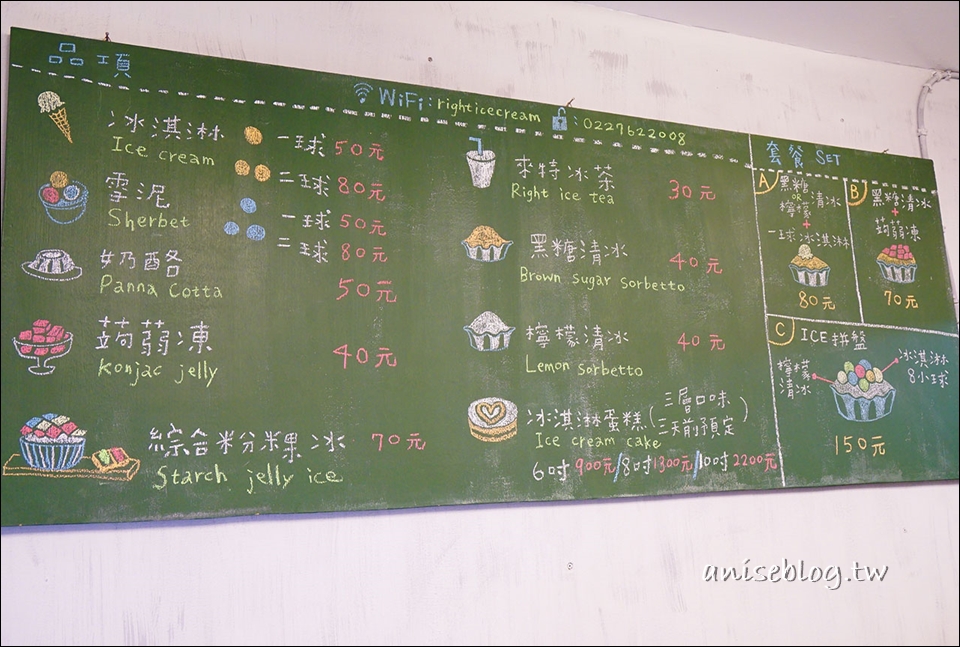 品項
WiFi:righticecream :0227622008
冰淇淋 一球50元
Ice cream 二球80元
雪泥 一球50元
Sherbet 二球80元
奶酪
Panna Cotta 50元
蒟蒻凍 40元
Konjac jelly
綜合粉粿冰 70元
Starch jelly ice
來特冰茶 30元
Right ice tea
黑糖清冰 40元
Brown sugar sorbetto
檸檬清冰 40元
Lemon sorbetto
冰淇淋蛋糕(三層口味
三天前預定)
Ice cream cake
6吋900元/8吋1300元/10吋2200元
套餐 SET
A 黑糖
OR
檸檬 清冰
+
一球冰淇淋
80元
B 黑糖清冰
+
蒟蒻凍
70元
C ICE拼盤
檸檬
清冰
冰淇淋
8小球
150元
aniseblog.tw